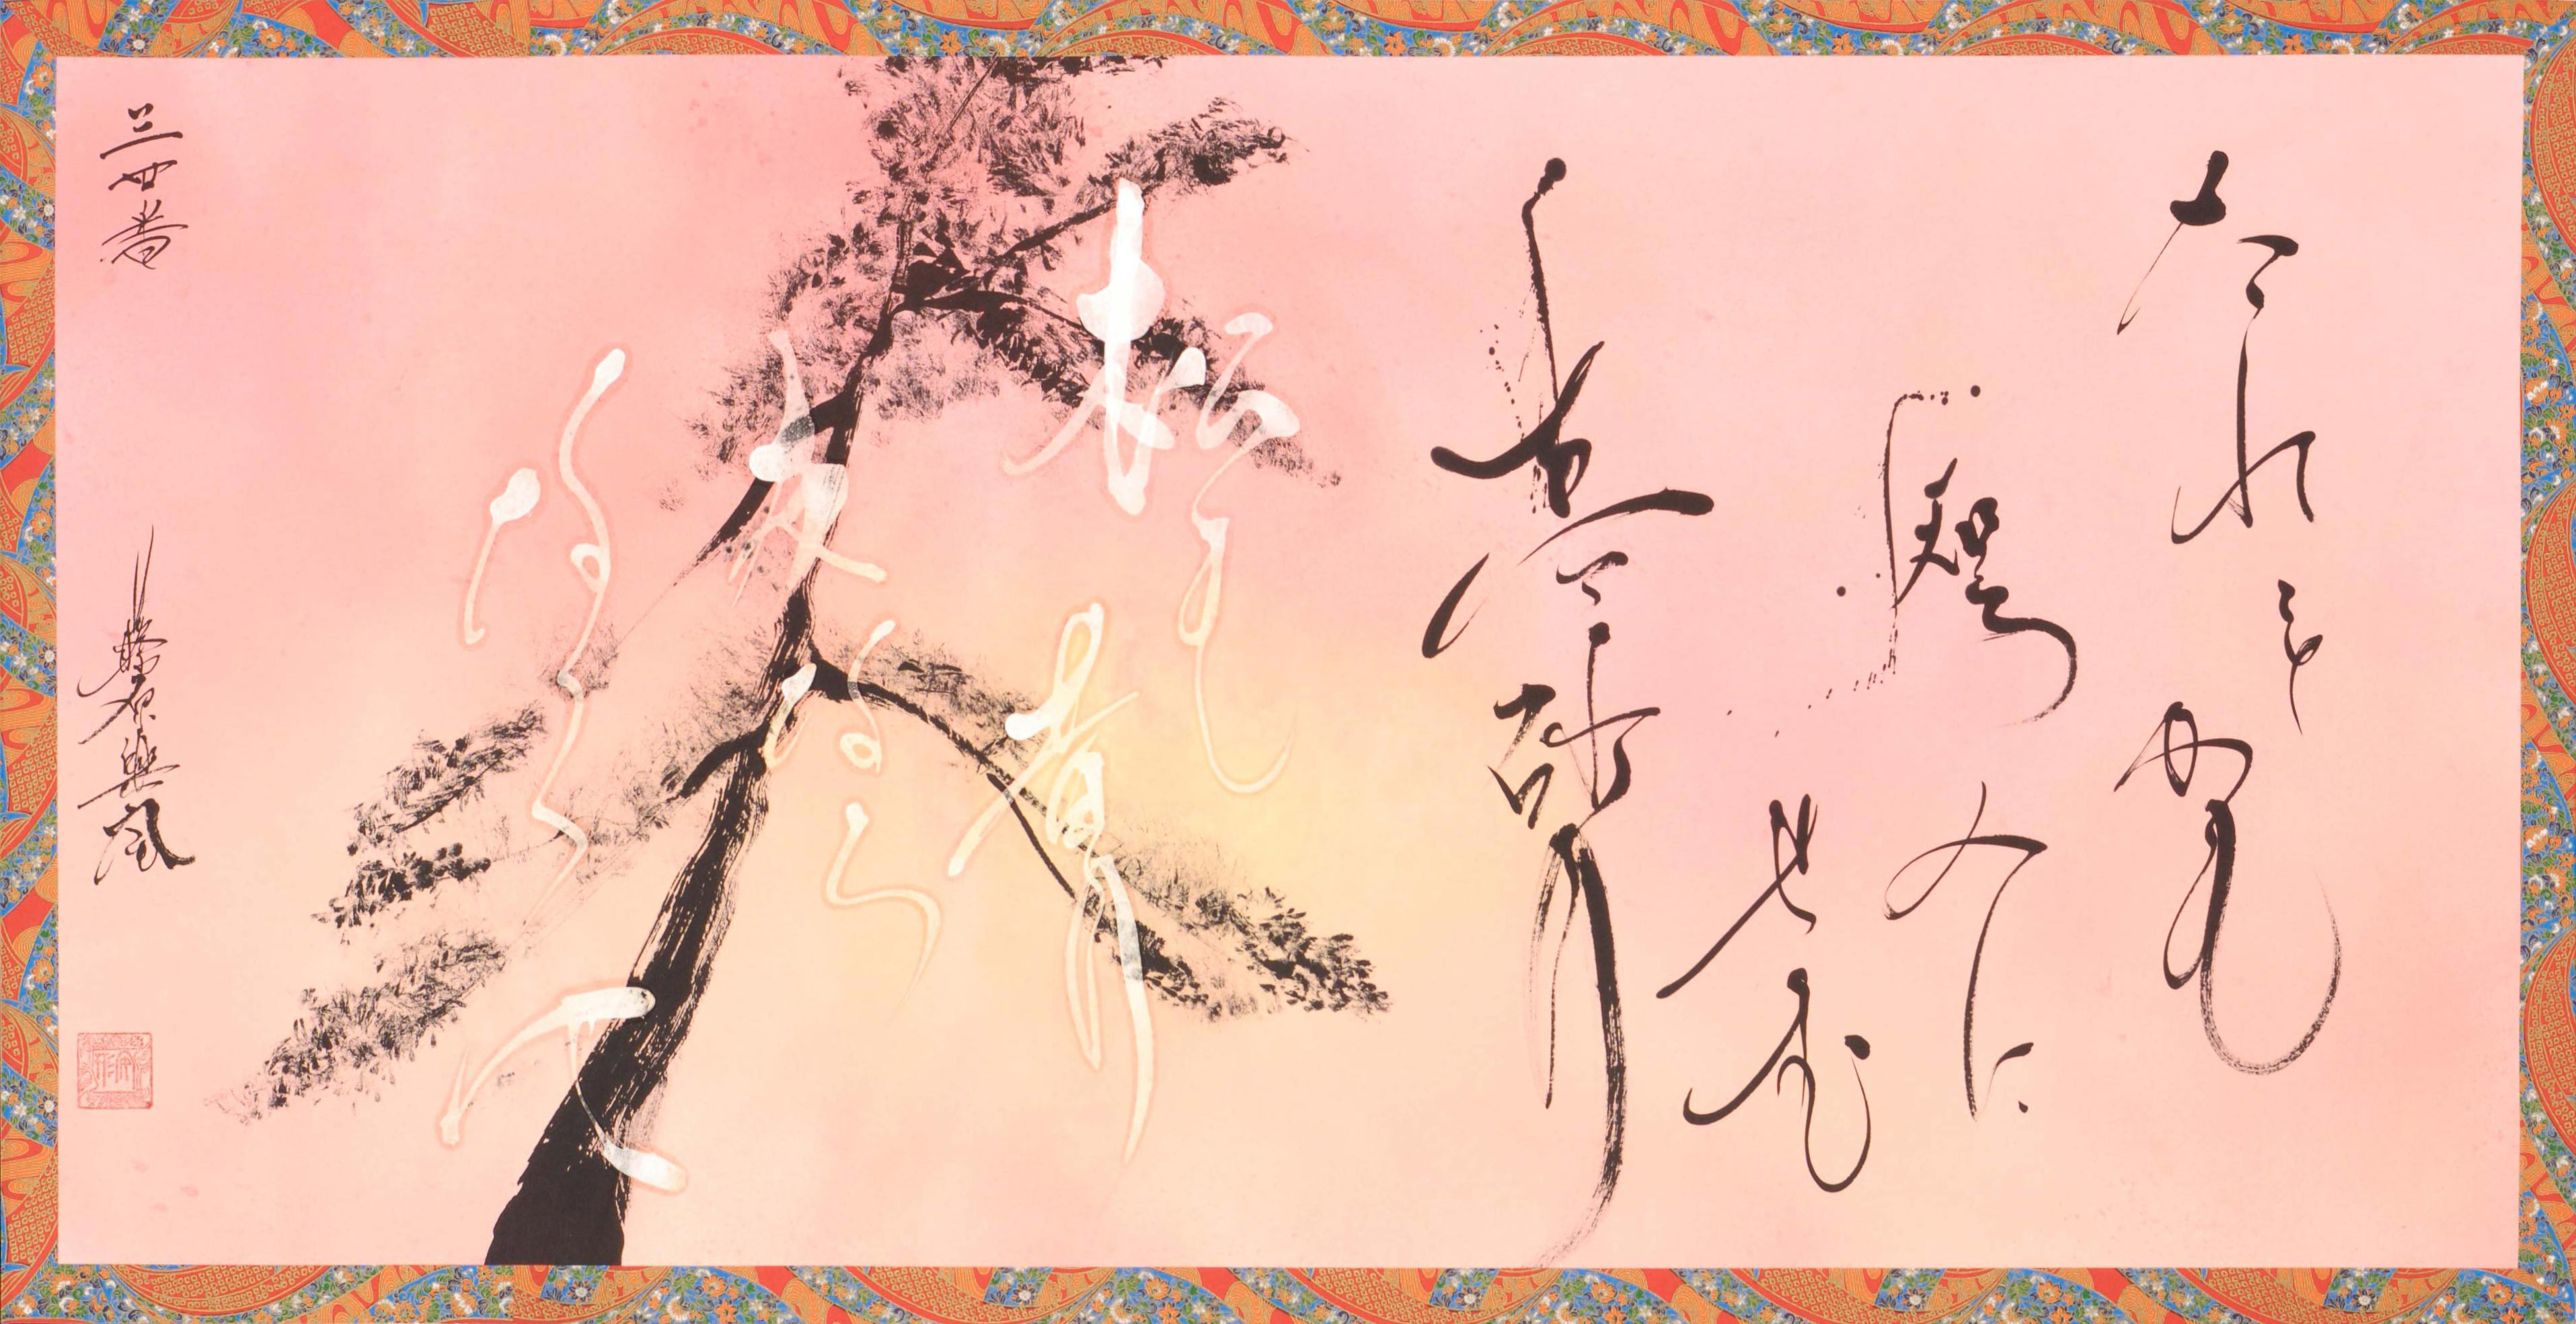 たれをかも
知る人に
せむ
高砂の
松も
昔の
友なら
なくに
三四番
藤原興風